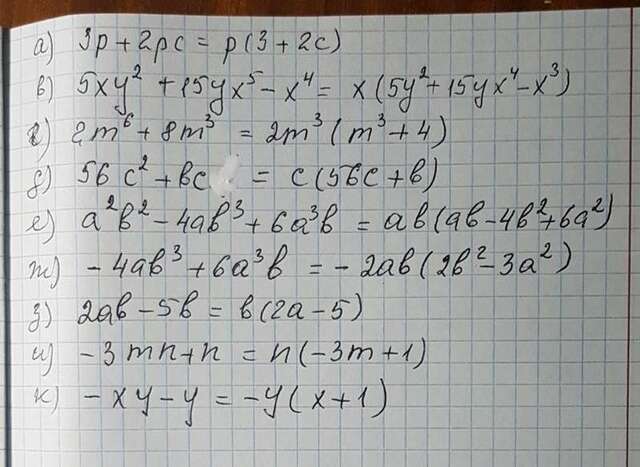 а) 3p + 2pc = p(3 + 2c)
в) 5xy² + 15yx⁵ - x⁴ = x(5y² + 15yx⁴ - x³)
г) 2m⁶ + 8m³ = 2m³(m³ + 4)
д) 56c² + bc = c(56c + b)
е) a²b² - 4ab³ + 6a³b = ab(ab - 4b² + 6a²)
ж) -4ab³ + 6a³b = -2ab(2b² - 3a²)
з) 2ab - 5b = b(2a - 5)
и) -3mn + n = n(-3m + 1)
к) -xy - y = -y(x + 1)